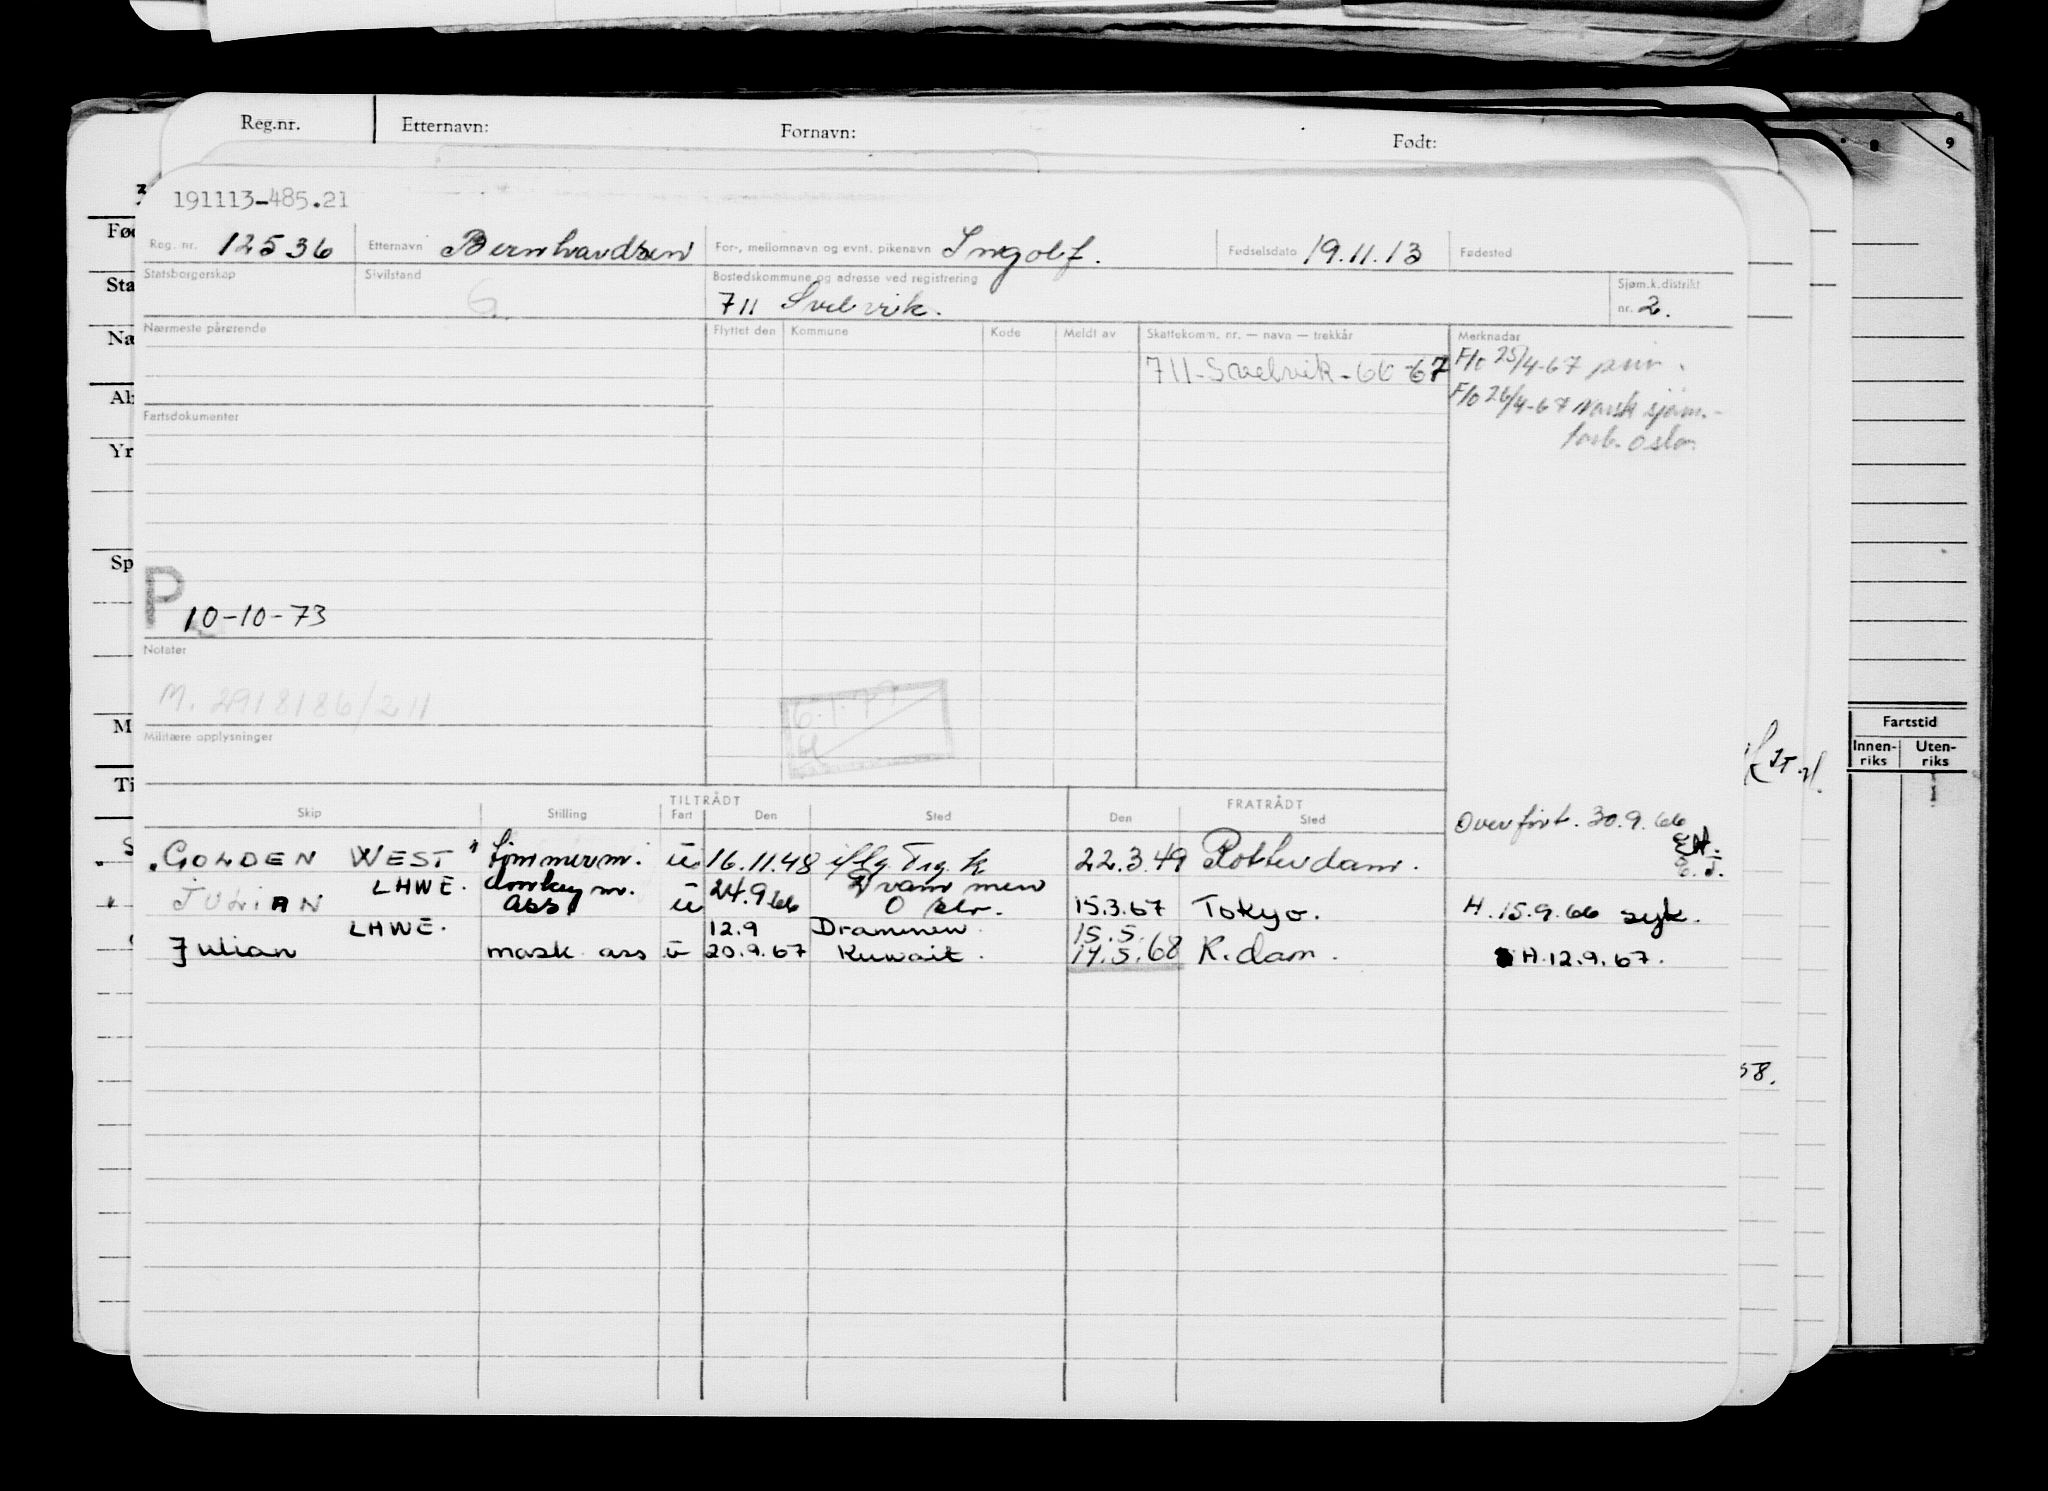 Reg.nr. Etternavn: Fornavn: Født:
9
191113-485.21
Reg. nr. 12536 Etternavn Bernhardsen For-, mellomnavn og evnt. pikenavn Ingolf. Fødselsdato 19.11.13 Fødested
Statsborgerskap Sivilstand G. Bostedskommune og adresse ved registrering 711 Svelvik. Sjøm.k.distrikt nr. 2.
Nærmeste pårørende Flyttet den Kommune Kode Meldt av Skattekomm. nr. — navn — trekkår Merknadar
711-Svelvik-66-67 F/o 25/4-67
F/o 26/4-67 Norsk sjøm.-
forb. Oslo.
Fartsdokumenter
P 10-10-73
Notater
M. 2918186/211
6.1.77
Militære opplysninger
Fartstid
Innen-riks Uten-riks
TILTRÅDT FRATRÅDT
Skip Stilling Fart Den Sted Den Sted
Overført. 30.9.66
GOLDEN WEST" tømmerm. u 16.11.48 22.3.49 Rotterdam.
LHWE. donkeym. Drammen
JULIAN ass. u 24.9.66 Oslo. 15.3.67 Tokyo. H. 15.9.66 syk.
LHWE. 12.9 Drammen. 15.5.
Julian mask ass u 20.9.67 Kuwait. 14.5.68 R.dam. H.12.9.67.
58.